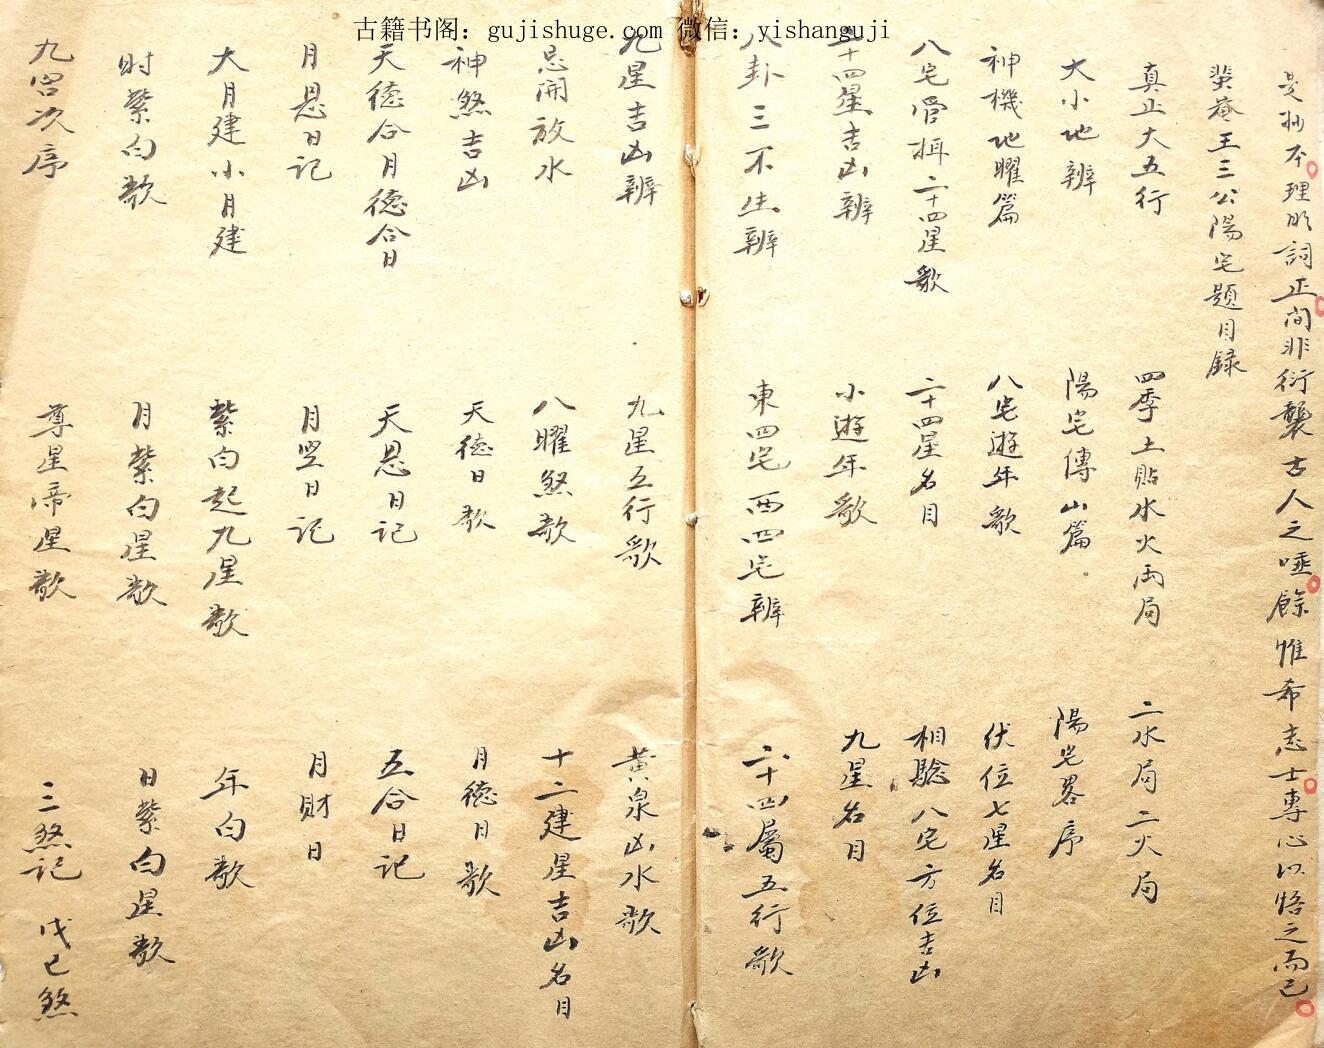 古籍书阁：gujishuge.com 微信：yishanguji
是抄本理明詞正間非衍襲古人之唾餘惟希志士專心以悟之而已
蜚菴王三公陽宅題目録
真正大五行 四季土貼水火両局 二水局二火局
大小地辨 陽宅傳山篇 陽宅畧序
神機地曜篇 八宅遊年歌 伏位七星名目
八宅管揖二十四星歌 二十四星名目 相驗八宅方位吉凶
二十四星吉凶辨 小遊年歌 九星名目
八卦三不生辨 東四宅西四宅辨 六十四屬五行歌
九星吉凶辨 九星五行歌 黄泉凶水歌
忌開放水 八曜煞歌 十二建星吉凶名目
神煞吉凶 天德日歌 月德日歌
天德合月德合日 天恩日記 五合日記
月恩日記 月空日記 月財日
大月建小月建 紫白起九星歌 年白歌
时紫白歌 月紫白星歌 日紫白星歌
九宫次序 尊星帝星歌 三煞記 戊己煞